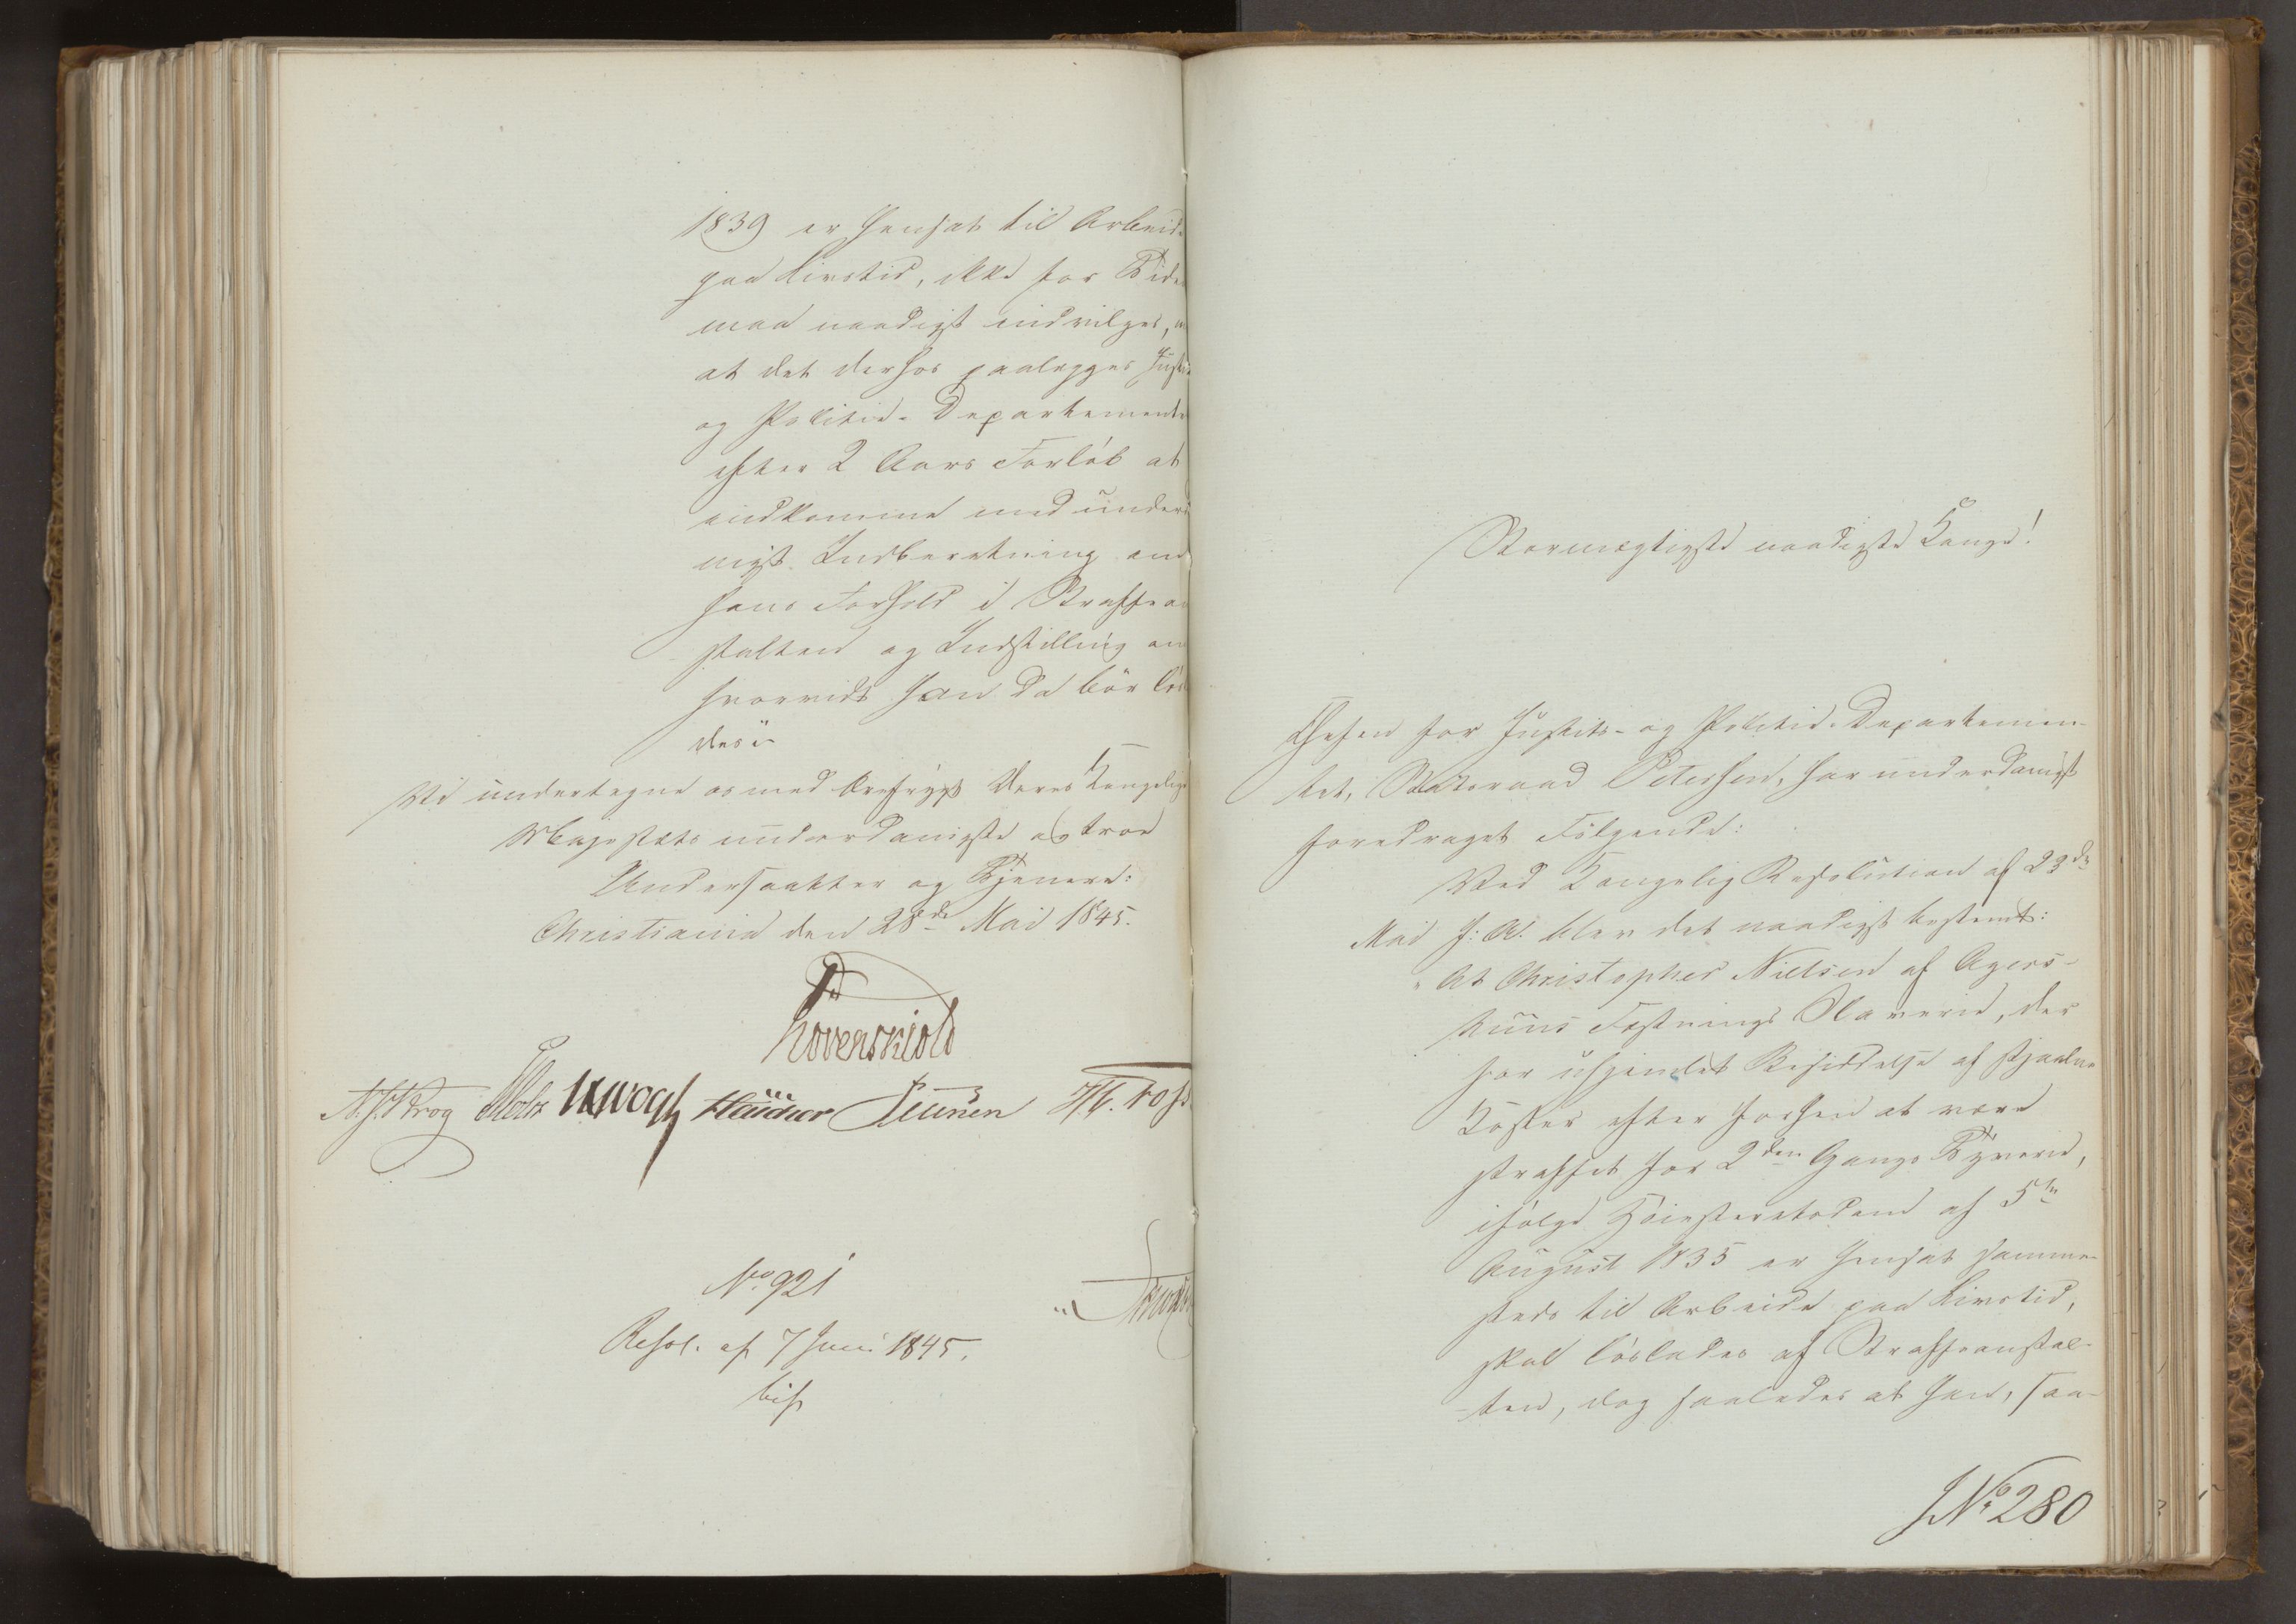 1839 er hensat til Arbeide
paa Livstid, ikke for Tiden
maa naadigst indvilges, m
at det derhos paalægges Justits
og Politie-Departementet
efter 2 Aars Forløb at
indkomme med underda
nigst Indberetning om
hans Forhold i Straffean
stalten og Indstilling om
hvorvidt han da bør løsla
des.
Vi undertegne os med Ærefrygt Deres Kongelige
Majestæts underdanigste og troe
Undersaatter og Tjenere:
Christiania den 28de Mai 1845.
Løvenskiold
Krog Vogt
No 921
Resol. af 7 Juni 1845.
bif
Stormægtigste naadigste Konge!
Chefen for Justits- og Politie-Departemen-
tet, Statsraad Petersen, har underdanigst
foredraget Følgende:
Ved Kongelig Resolution af 23de
Mai f: A. blev det naadigst bestemt:
"At Christopher Nielsen af Agers-
huus Fæstnings Slaverie, der
for uhjemlet Besiddelse af stjaalne
Koster efter forhen at være
straffet for 2den Gangs Tyverie,
ifølge Høiesteretsdom af 5te
August 1835 er hensat samme-
steds til Arbeide paa Livstid,
skal løslades af Straffeanstal-
ten, dog saaledes at han, saa-
JNo 280